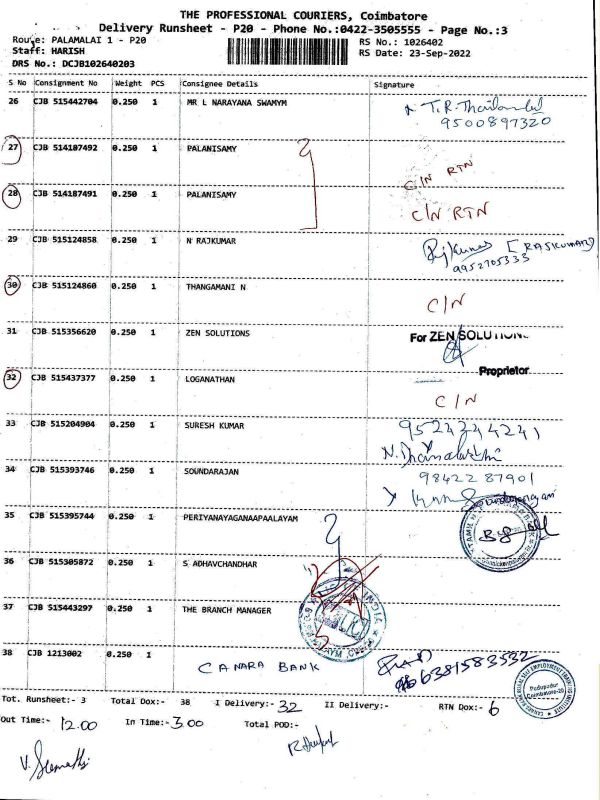 THE PROFESSIONAL COURIERS, Coimbatore
Delivery Runsheet - P20 - Phone No.:0422-3505555 - Page No.:3
Route: PALAMALAI 1 - P20
RS No.: 1026402
Staff: HARISH
RS Date: 23-Sep-2022
DRS No.: DCJB102640203
S No Consignment No Weight PCS Consignee Details Signature
26 CJB 515442704 0.250 1 MR L NARAYANA SWAMYM
9500897320
27 CJB 514187492 0.250 1 PALANISAMY C/N RTN
28 CJB 514187491 0.250 1 PALANISAMY C/N RTN
29 CJB 515124858 0.250 1 N RAJKUMAR Rajkumar [RAJKUMAR]
9952705333
30 CJB 515124860 0.250 1 THANGAMANI N C/N
31 CJB 515356620 0.250 1 ZEN SOLUTIONS For ZEN SOLUTIONS
Proprietor
32 CJB 515437377 0.250 1 LOGANATHAN C/N
33 CJB 515204904 0.250 1 SURESH KUMAR 9524344241
34 CJB 515393746 0.250 1 SOUNDARAJAN 9842287901
35 CJB 515395744 0.250 1 PERIYANAYAGANAAPAALAYAM
36 CJB 515305872 0.250 1 S ADHAVCHANDHAR
37 CJB 515443297 0.250 1 THE BRANCH MANAGER
38 CJB 1213002 0.250 1 CANARA BANK 6381583532
Tot. Runsheet:- 3 Total Dox:- 38 I Delivery:- 32 II Delivery:- RTN Dox:- 6
Out Time:- 12.00 In Time:- 3.00 Total POD:-